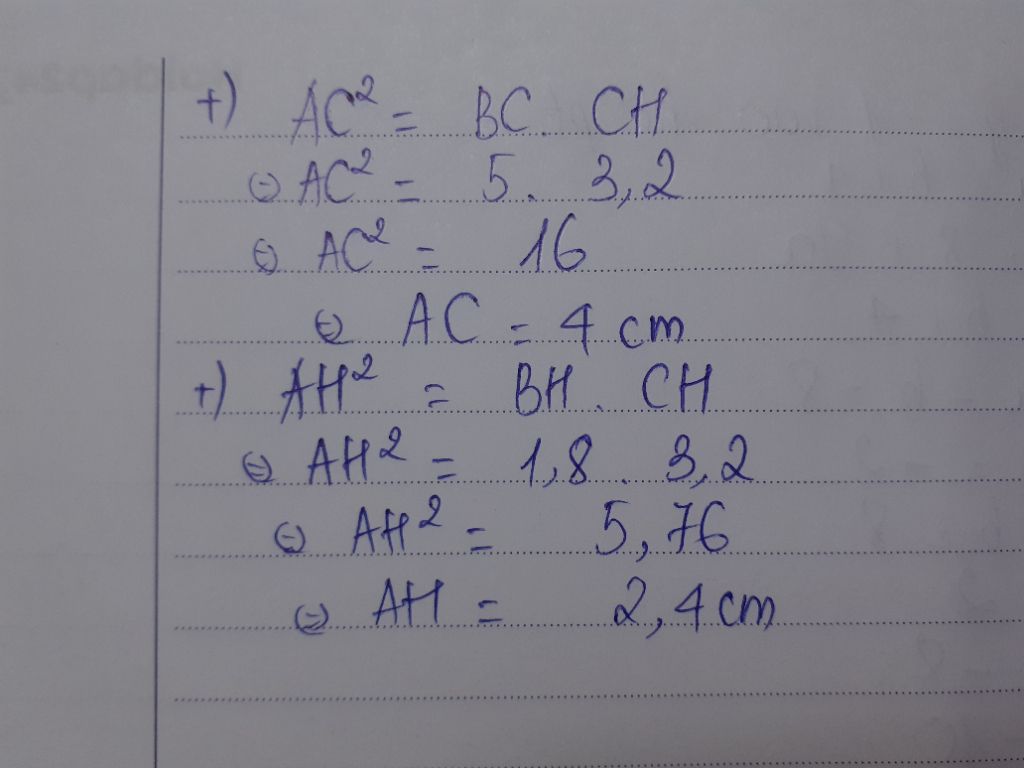 +) AC² = BC . CH
⇔ AC² = 5 . 3,2
⇔ AC² = 16
⇔ AC = 4 cm
+) AH² = BH . CH
⇔ AH² = 1,8 . 3,2
⇔ AH² = 5,76
⇔ AH = 2,4 cm